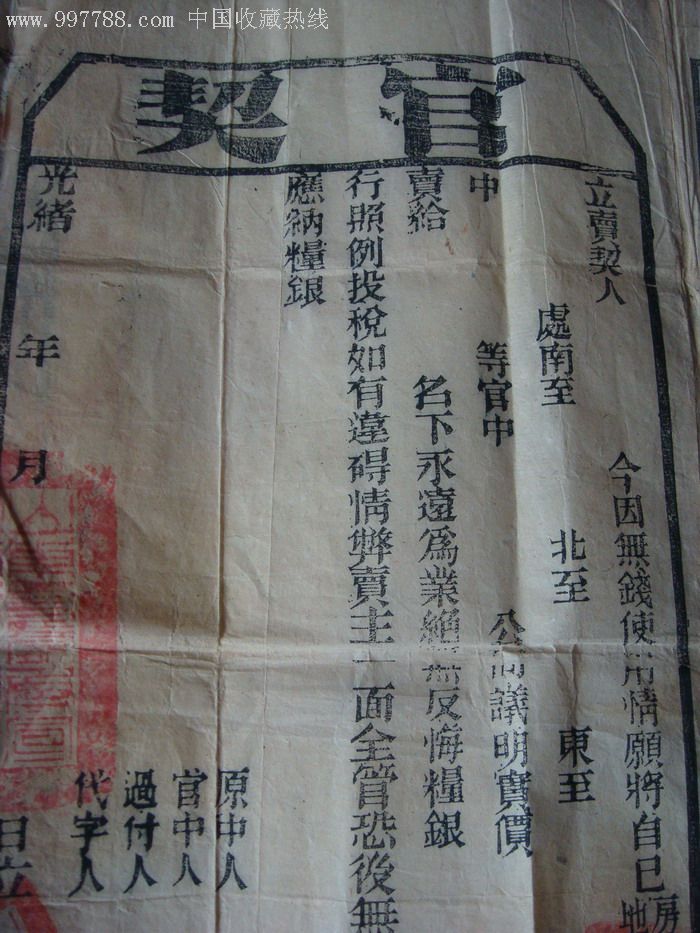 www.997788.com 中国收藏热线
官契
立賣契人 今因無錢使用情願將自己房地
處南至 北至 東至
中 等官中 公同議明實價
賣給 名下永遠為業絕無反悔糧銀
行照例投稅如有違碍情弊賣主一面全管恐後無
應納糧銀
原中人
官中人
過付人
代字人
光緒 年 月 日立